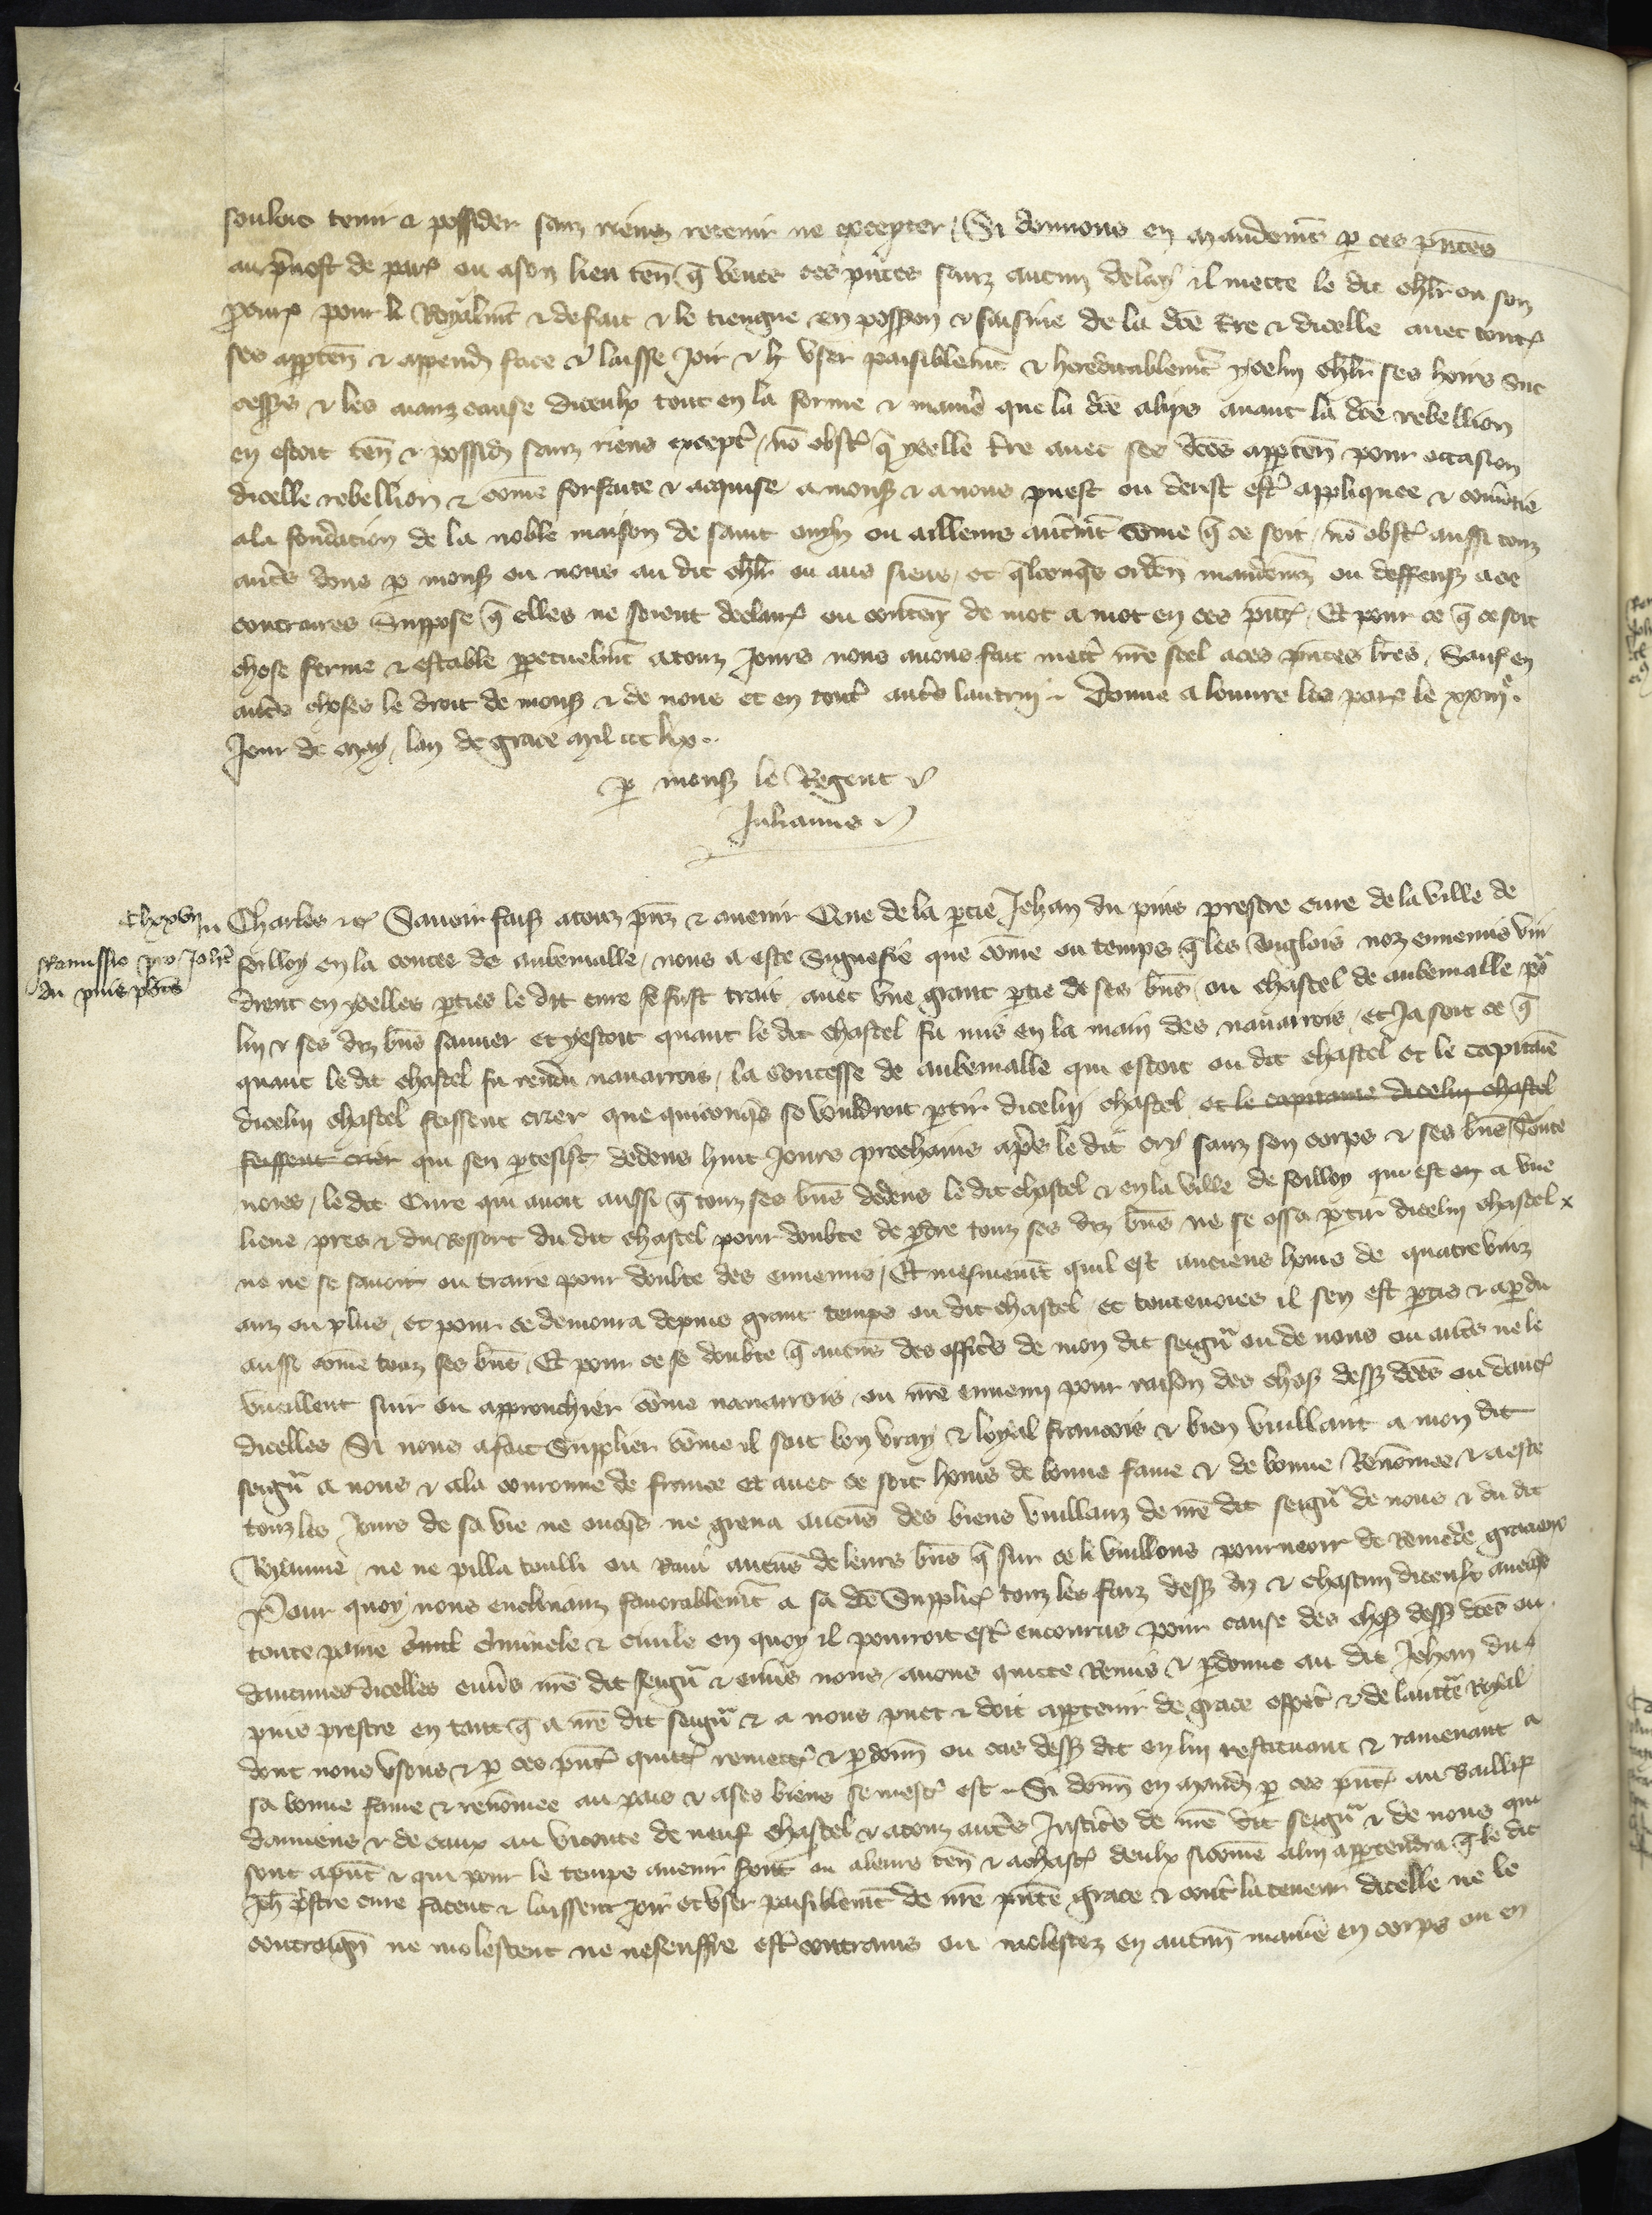 souloit tenir & possider sanz riens retenir ne excepter / Si donnons en mandement par ces presentes
au prevost de paris ou a son lieu tenant que veues ces presentes sanz aucun delay il mette le dit chevalier ou son
procureur pour li Royalment & de fait & le tiengne en possession & saisine de la dite terre & dicelle avec toutes
ses appartenances & appendances face & laisse joir & user paisiblement & hereditablement ycelui chevalier ses hoirs suc
cesseurs & les aianz cause diceulx tout en la forme & maniere que la dite avant la dite rebellion
en estoit tenant & possidant sanz riens excepter / non obstant que ycelle terre avec ses dites appartenances pour occasion
dicelle rebellion & comme forfaite & acquise a monseigneur & a nous puest ou deust estre appliquee & convertie
a la fondacion de la noble maison de saint ouyn ou ailleurs autrement comme que ce soit / non obstant aussi touz
autres dons par monseigneur ou nous au dit chevalier ou aus siens / et quelconques ordenances mandemenz ou deffenses a ce
contraires Suppose que elles ne soient declarees ou contenues de mot a mot en ces presentes / Et pour ce que ce soit
chose ferme & estable perpetuelment a touz jours nous avons fait mettre nostre scel a ces presentes lettres / Sauf en
autres choses le droit de monseigneur & de nous et en toutes autres lautrui / Donne a louvre les paris le xxiiije
Jour de may / lan de grace mil ccc lix
par monseigneur le Regent
Julianus
Remissio pro Johanne
du puis presbitero
Charles etc Savoir faisons a touz presenz & avenir Que de la partie Jehan du puis prestre cure de la ville de
foilloy en la contee de aubemalle / nous a este Signefie que comme ou temps que les Anglois noz ennemis vin
drent en ycelles parties le dit cure se fust trait avec une grant partie de ses biens ou chastel de aubemalle pour
lui & ses diz biens sauver et y estoit quant le dit chastel fu mis en la main des navarrois / et ja soit ce que
quant le dit chastel fu rendu navarrois / la contesse de aubemalle qui estoit ou dit chastel et le capitaine
dicelui chastel feissent crier que quiconques se vouldroit partir dicelui chastel et le capitaine dicelui chastel
feissent crier qui sen partesist dedens huit jours prochains apres le dit cry sanz son corps & ses biens Toute
voies / le dit Cure qui avoit aussi que touz ses biens dedens le dit chastel & en la ville de foilloy qui est en a une
lieue pres & du Ressort du dit chastel pour doubte de perdre touz ses diz biens ne se ossa partir dicelui chastel
ne ne se savoit ou traire pour doubte des ennemis / Et mesmement quil est anciens homs de quatre vinz
anz ou plus / et pour ce demoura depuis grant temps ou dit chastel / et toutevoies il sen est partis & a perdu
aussi comme touz ses biens / Et pour ce se doubte que aucuns des officiers de mon dit seigneur ou de nous ou autres ne le
vueillent suir ou approuchier comme navarrois ou nostre ennemi pour raison des choses dessus dites ou daucunes
dicelles Si nous a fait Supplier comme il soit bon vray & loyal francois & bien vuillant a mon dit
seigneur a nous & a la couronne de france et avec ce soit homs de bonne fame & de bonne Renommee & a este
touz les jours de sa vie ne onques ne greva aucuns des biens vuillanz de nostre dit seigneur de nous & du dit
Royaume / ne ne pilla toulli ou Ravi aucuns de leurs biens que sur ce li vuillons pourveoir de Remede gracieux
Pour quoy nous enclinanz favorablement a sa dite Supplicacion touz les faiz dessus diz & chascun diceulx avecques
toute paine criminele & civile en quoy il pourroit estre encourus pour cause des choses dessus dites ou
daucunes dicelles envers nostre dit seigneur & envers nous / avons quicte Remis & pardonne au dit Jehan du
puis prestre en tant que a nostre dit seigneur & a nous puet & doit appartenir de grace especial & de lauctorite Royal
dont nous usons & par ces presentes quittons remettons & pardonnons ou cas dessus dit en lui restituant & ramenant a
sa bonne fame & renommee au pais & a ses biens se mestier est / Si donnons en mandement par ces presentes au Baillif
damiens & de caux au viconte de neuf chastel & a touz autres Justiciers de nostre dit seigneur & de nous qui
sont a present & qui pour le temps avenir seront ou a leurs lieux tenans & a chascun deulx si comme a lui appartendra que le dit
Jehan prestre cure facent & laissent joir et user paisiblement de nostre presente grace & contre la teneur dicelle ne le
contraignent ne molestent ne ne seuffre estre contrains ou molestez en aucune maniere en corps ou en